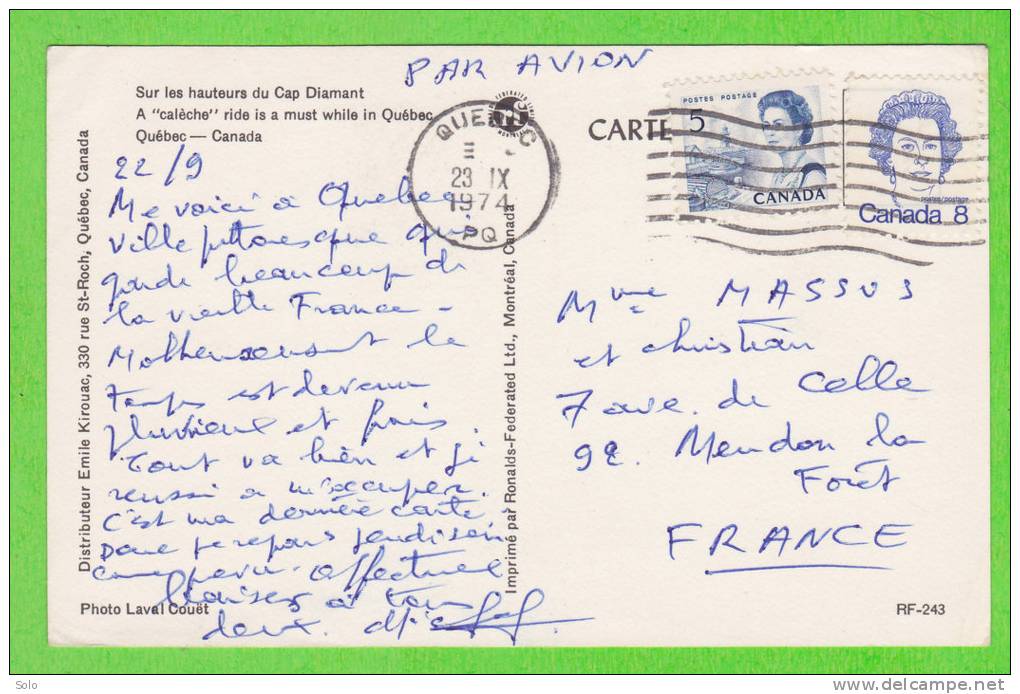 PAR AVION
Sur les hauteurs du Cap Diamant
A "calèche" ride is a must while in Québec
Québec — Canada
QUEBEC
23 IX
1974
PQ
CARTE
POSTES POSTAGE
5
CANADA
postes/postage
Canada 8
22/9
Me voici à Quebec
ville pittoresque qui
garde beaucoup de
la vieille France -
Malheureusement le
temps est devenu
pluvieux et frais.
Tout va bien et j'ai
reussi a m'occuper.
C'est ma dernière carte
Donc je repars jeudi soir
comme prévu. Affectueux
baisers à tous
deux.
Mme MASSUS
et christian
7 ave. de Celle
92. Meudon la
Forêt
FRANCE
Distributeur Emile Kirouac, 330 rue St-Roch, Québec, Canada
Imprimé par Ronalds-Federated Ltd., Montréal, Canada
Photo Laval Couët
RF-243
Solo
www.delcampe.net